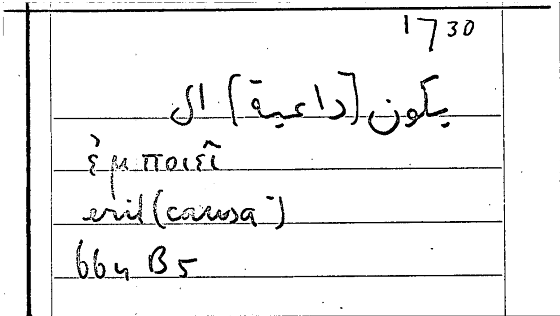 1730
يكون (داعية) ال
ἐμποιεῖ
erit (causa-)
664 B5